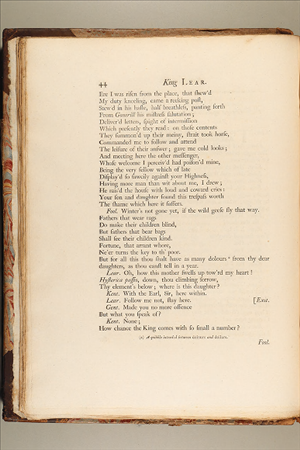 44 King LEAR.
Ere I was risen from the place, that shew'd
My duty kneeling, came a reeking post,
Stew'd in his haste, half breathless, panting forth
From Gonerill his mistress salutation;
Deliver'd letters, spight of intermission
Which presently they read: on those contents
They summon'd up their meiny, strait took horse,
Commanded me to follow and attend
The leisure of their answer; gave me cold looks;
And meeting here the other messenger,
Whose welcome I perceiv'd had poison'd mine,
Being the very fellow which of late
Display'd so sawcily against your Highness,
Having more man than wit about me, I drew;
He rais'd the house with loud and coward cries:
Your son and daughter found this trespass worth
The shame which here it suffers.
Fool. Winter's not gone yet, if the wild geese fly that way.
Fathers that wear rags
Do make their children blind,
But fathers that bear bags
Shall see their children kind.
Fortune, that arrant whore,
Ne'er turns the key to th' poor.
But for all this thou shalt have as many dolours from thy dear
daughters, as thou canst tell in a year.
Lear. Oh, how this mother swells up tow'rd my heart!
Hysterica passio, down, thou climbing sorrow,
Thy element's below; where is this daughter?
Kent. With the Earl, Sir, here within.
Lear. Follow me not, stay here. [Exit.
Gent. Made you no more offence
But what you speak of?
Kent. None;
How chance the King comes with so small a number?
(a) A quibble intended between dolours and dollars.
Fool.